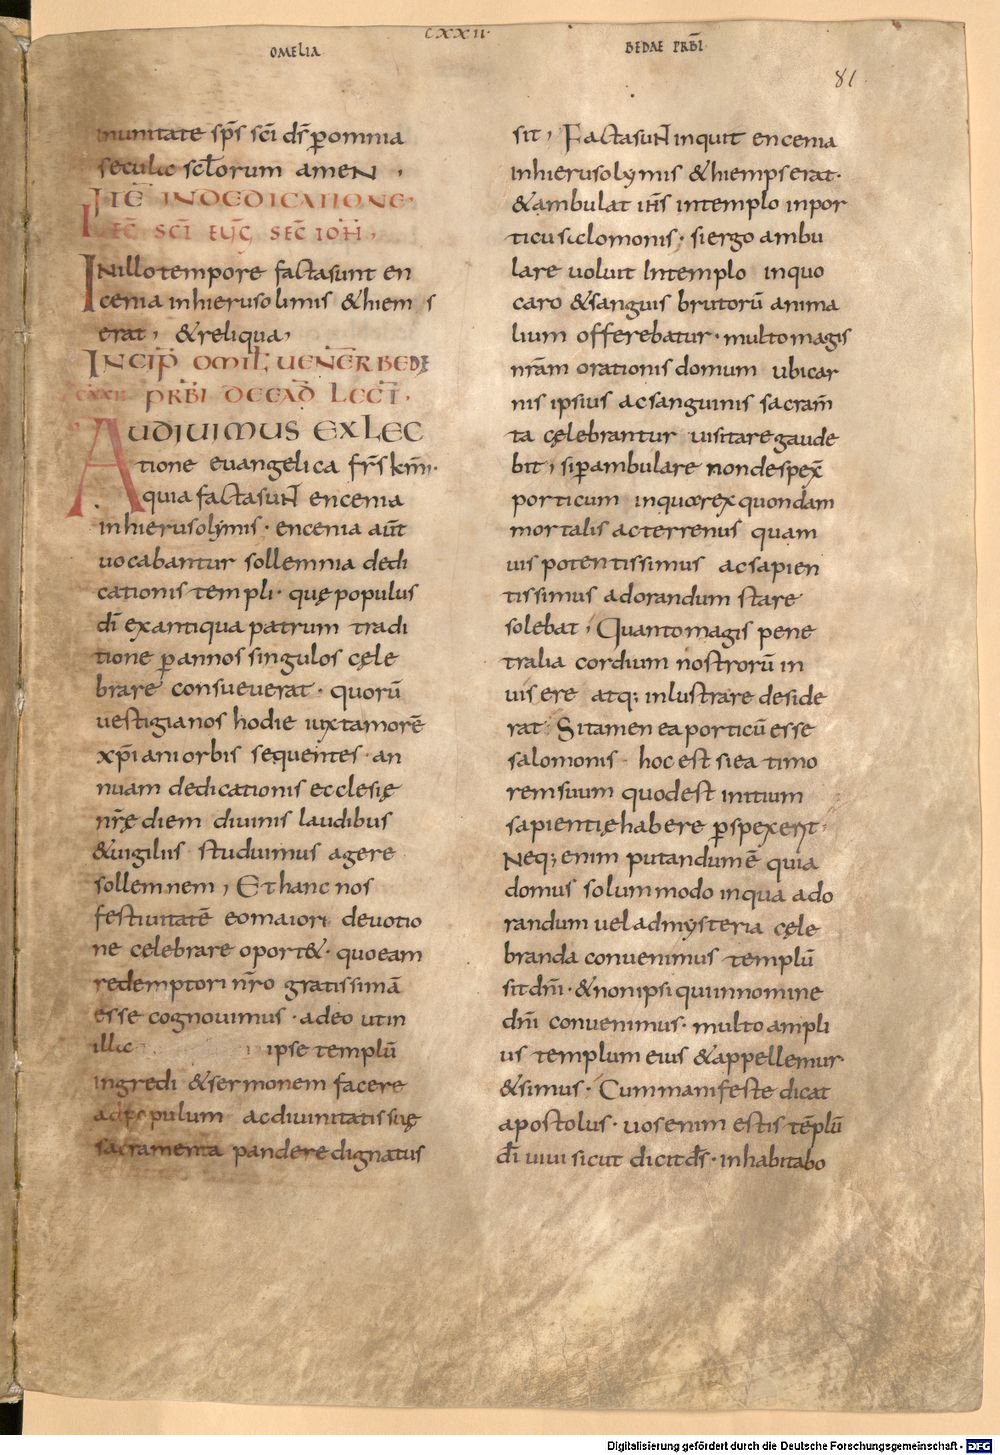 CXXII
OMELIA
BEDAE PRB̄I
81
munitate sp̄s sc̄i ds̄ ꝑ omnia
seculic scl̄orum amen,
ITĒ IN DEDICATIONE
EC̄ SC̄I EVḠ SEC̄ IOH̄,
IN illo tempore facta sunt en
cenia in hierusolimis & hiem s
erat, & reliqua,
INCIP̄ OMIL̄ UENER̄ BEDĘ
CXXII PRB̄I DE EAD̄ LECT̄.
AUDIVIMUS EX LEC
tione euangelica fr̄s km̄i.
quia facta sun̄t encenia
in hierusolymis · encenia aūt
uocabantur sollemnia dedi
cationis templi · quę populus
dī ex antiqua patrum tradi
tione ꝑ annos singulos cęle
brare consueuerat · quorū
uestigia nos hodie iuxta morē
xp̄iani orbis sequentes · an
nuam dedicationis ecclesię
nr̄ę diem diuinis laudibus
& uigiliis studuimus agere
sollemnem, Et hanc nos
festiuitatē eo maiori deuotio
ne celebrare oport& · quo eam
redemptori nr̄o gratissimā
esse cognouimus · adeo ut in
illic ipse templū
ingredi & sermonem facere
ad populum ac diuinitatis suę
sacramenta pandere dignatus
sit, Facta sun̄t inquit encenia
in hierusolymis & hiemps erat.
& ambulat ih̄s in templo in por
ticu salomonis · si ergo ambu
lare uoluit In templo in quo
caro & sanguis brutorū anima
lium offerebatur · multo magis
nr̄am orationis domum ubi car
nis ipsius ac sanguinis sacram̄
ta cęlebrantur uisitare gaude
bit, si ꝑambulare non despex̄
porticum in qua rex quondam
mortalis ac terrenus quam
uis potentissimus ac sapien
tissimus ad orandum stare
solebat, Quanto magis pene
tralia cordium nostrorū in
uisere atq; inlustrare deside
rat Si tamen ea porticū esse
salomonis · hoc est si ea timo
rem suum quod est initium
sapientię habere ꝑspexerit
Neq; enim putandum ē quia
domus solummodo in qua ad o
randum uel ad mysteria cęle
branda conuenimus templū
sit dn̄i · & non ipsi qui in nomine
dn̄i conuenimus · multo ampli
us templum eius & appellemur
& simus · Cum manifeste dicat
apostolus · uos enim estis tēplū
dī uiui sicut dicit ds̄ · inhabitabo
Digitalisierung gefördert durch die Deutsche Forschungsgemeinschaft - DFG